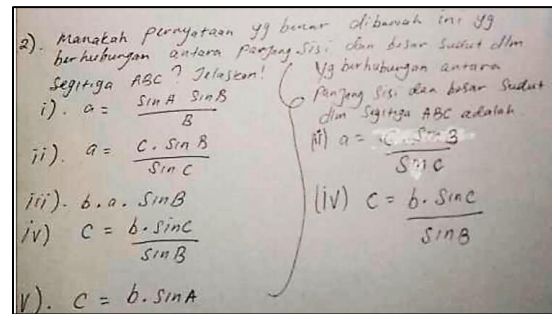 2). Manakah pernyataan yg benar dibawah ini yg
berhubungan antara panjang sisi dan besar sudut dlm
segitiga ABC? Jelaskan!
i). a = sin A sin B / B
ii). a = c . sin B / sin C
iii). b . a . sin B
iv) c = b . sin C / sin B
v). c = b . sin A
yg berhubungan antara
panjang sisi dan besar sudut
dlm segitiga ABC adalah
(ii) a = c . sin B / sin C
(iv) c = b . sin C / sin B